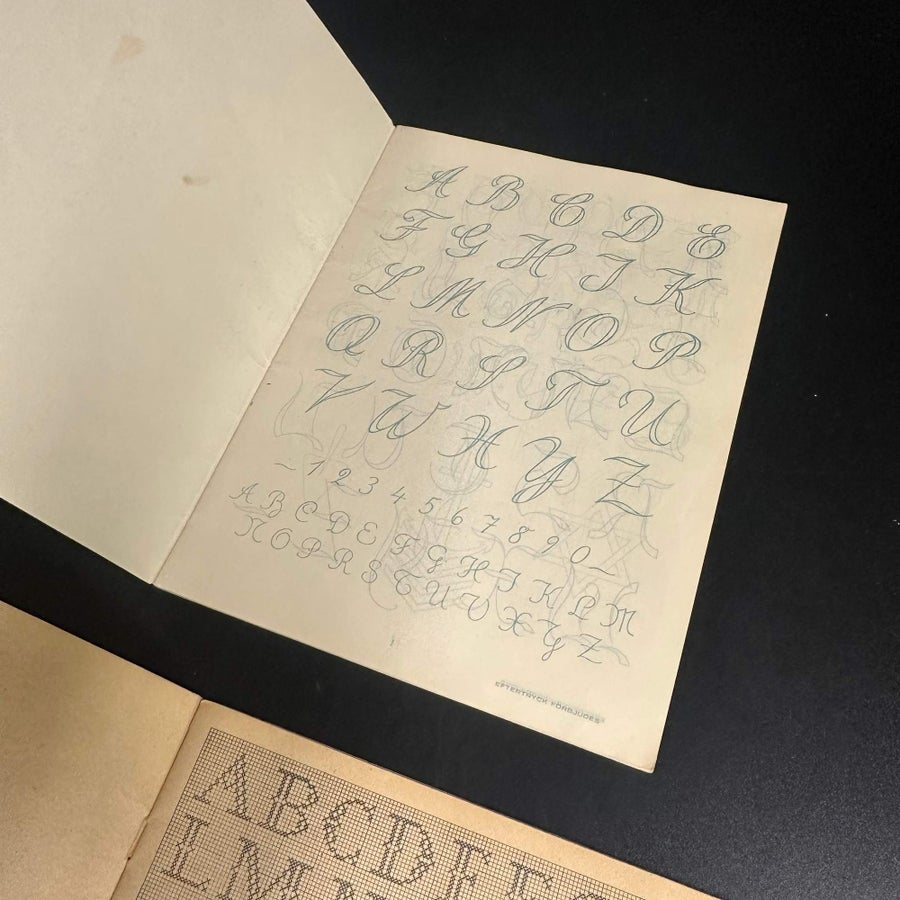 A B C D E
F G H I K
L M N O P
Q R S T U
V W X Y Z
~ 1 2 3 4 5 6 7 8 9 0 ~
A B C D E F G H I K L M
N O P R S T U V X Y Z
EFTERTRYCK FÖRBJUDES
A B C D E
L M